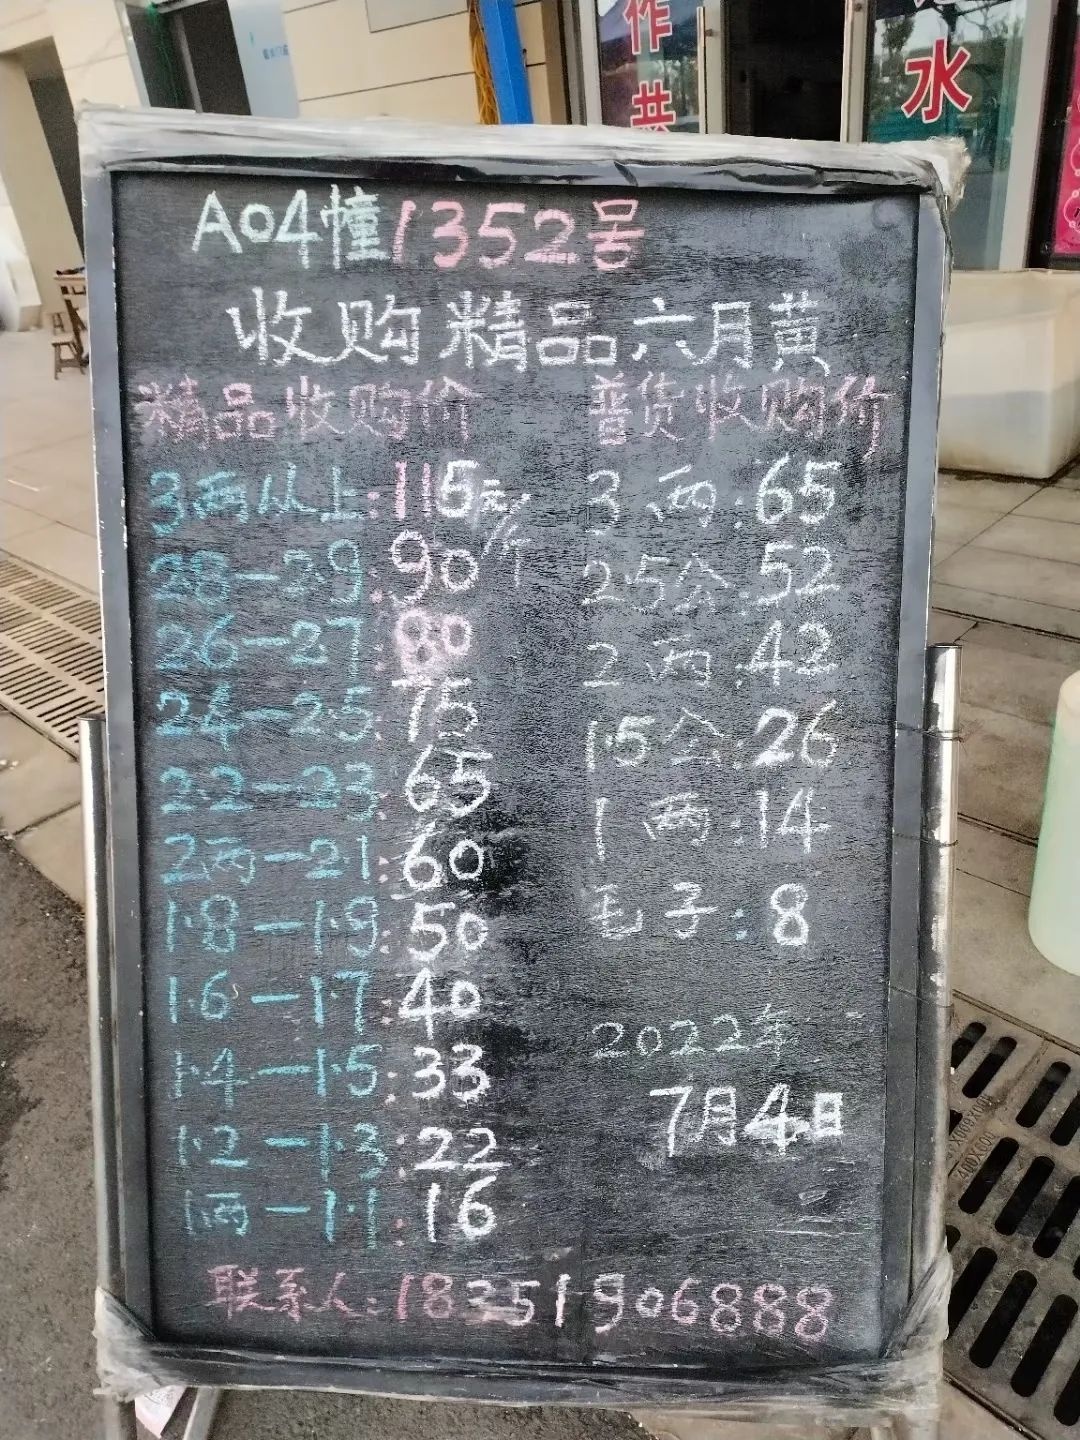 作共
水
A04幢1352号
收购精品六月黄
精品收购价
3两以上:115元/个
28-2.9:90
26-27:80
24-2.5:75
2.2-23:65
2两-2.1:60
1.8-1.9:50
1.6-1.7:40
1.4-1.5:33
1.2-1.3:22
1两-1.1:16
普货收购价
3两:65
2.5公:52
2两:42
1.5公:26
1两:14
毛子:8
2022年
7月4日
联系人:18351906888